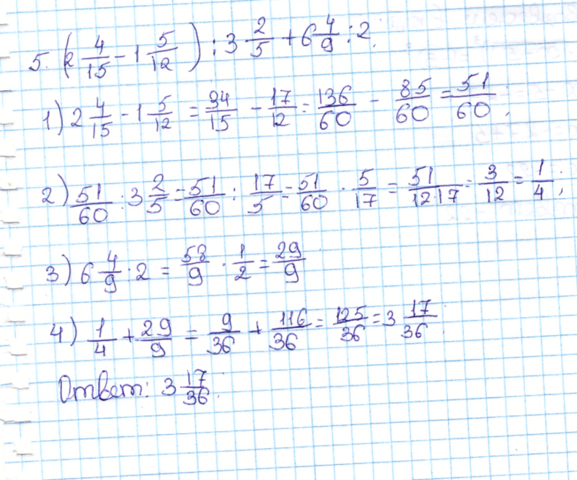 5. (2 4/15 - 1 5/12) : 3 2/5 + 6 4/9 : 2.
1) 2 4/15 - 1 5/12 = 34/15 - 17/12 = 136/60 - 85/60 = 51/60.
2) 51/60 : 3 2/5 = 51/60 : 17/5 = 51/60 · 5/17 = 51/12·17 = 3/12 = 1/4;
3) 6 4/9 : 2 = 58/9 · 1/2 = 29/9
4) 1/4 + 29/9 = 9/36 + 116/36 = 125/36 = 3 17/36.
Ответ: 3 17/36.